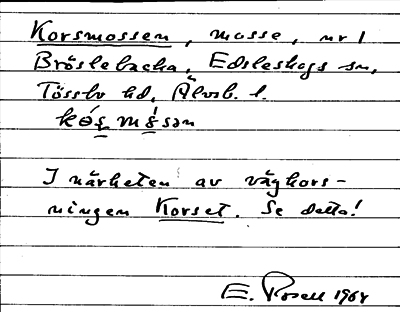 Korsmossen, mosse, nr 1
Bröslebacka, Edsleskogs sn,
Tössbo hd, Älvsb. l.
I närheten av vägkors-
ningen Korset. Se detta!
E. Rosell 1964